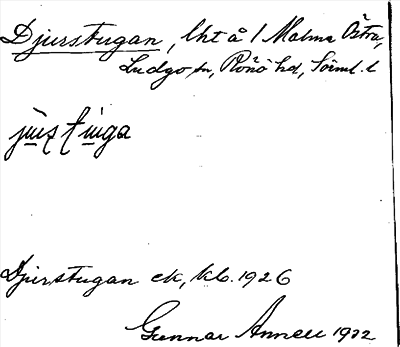 Djurstugan, lht å 1 Malma Östra,
Ludgo sn, Rönö hd, Söml. l
Djurstugan ek, kb. 1926
Gunnar 1932